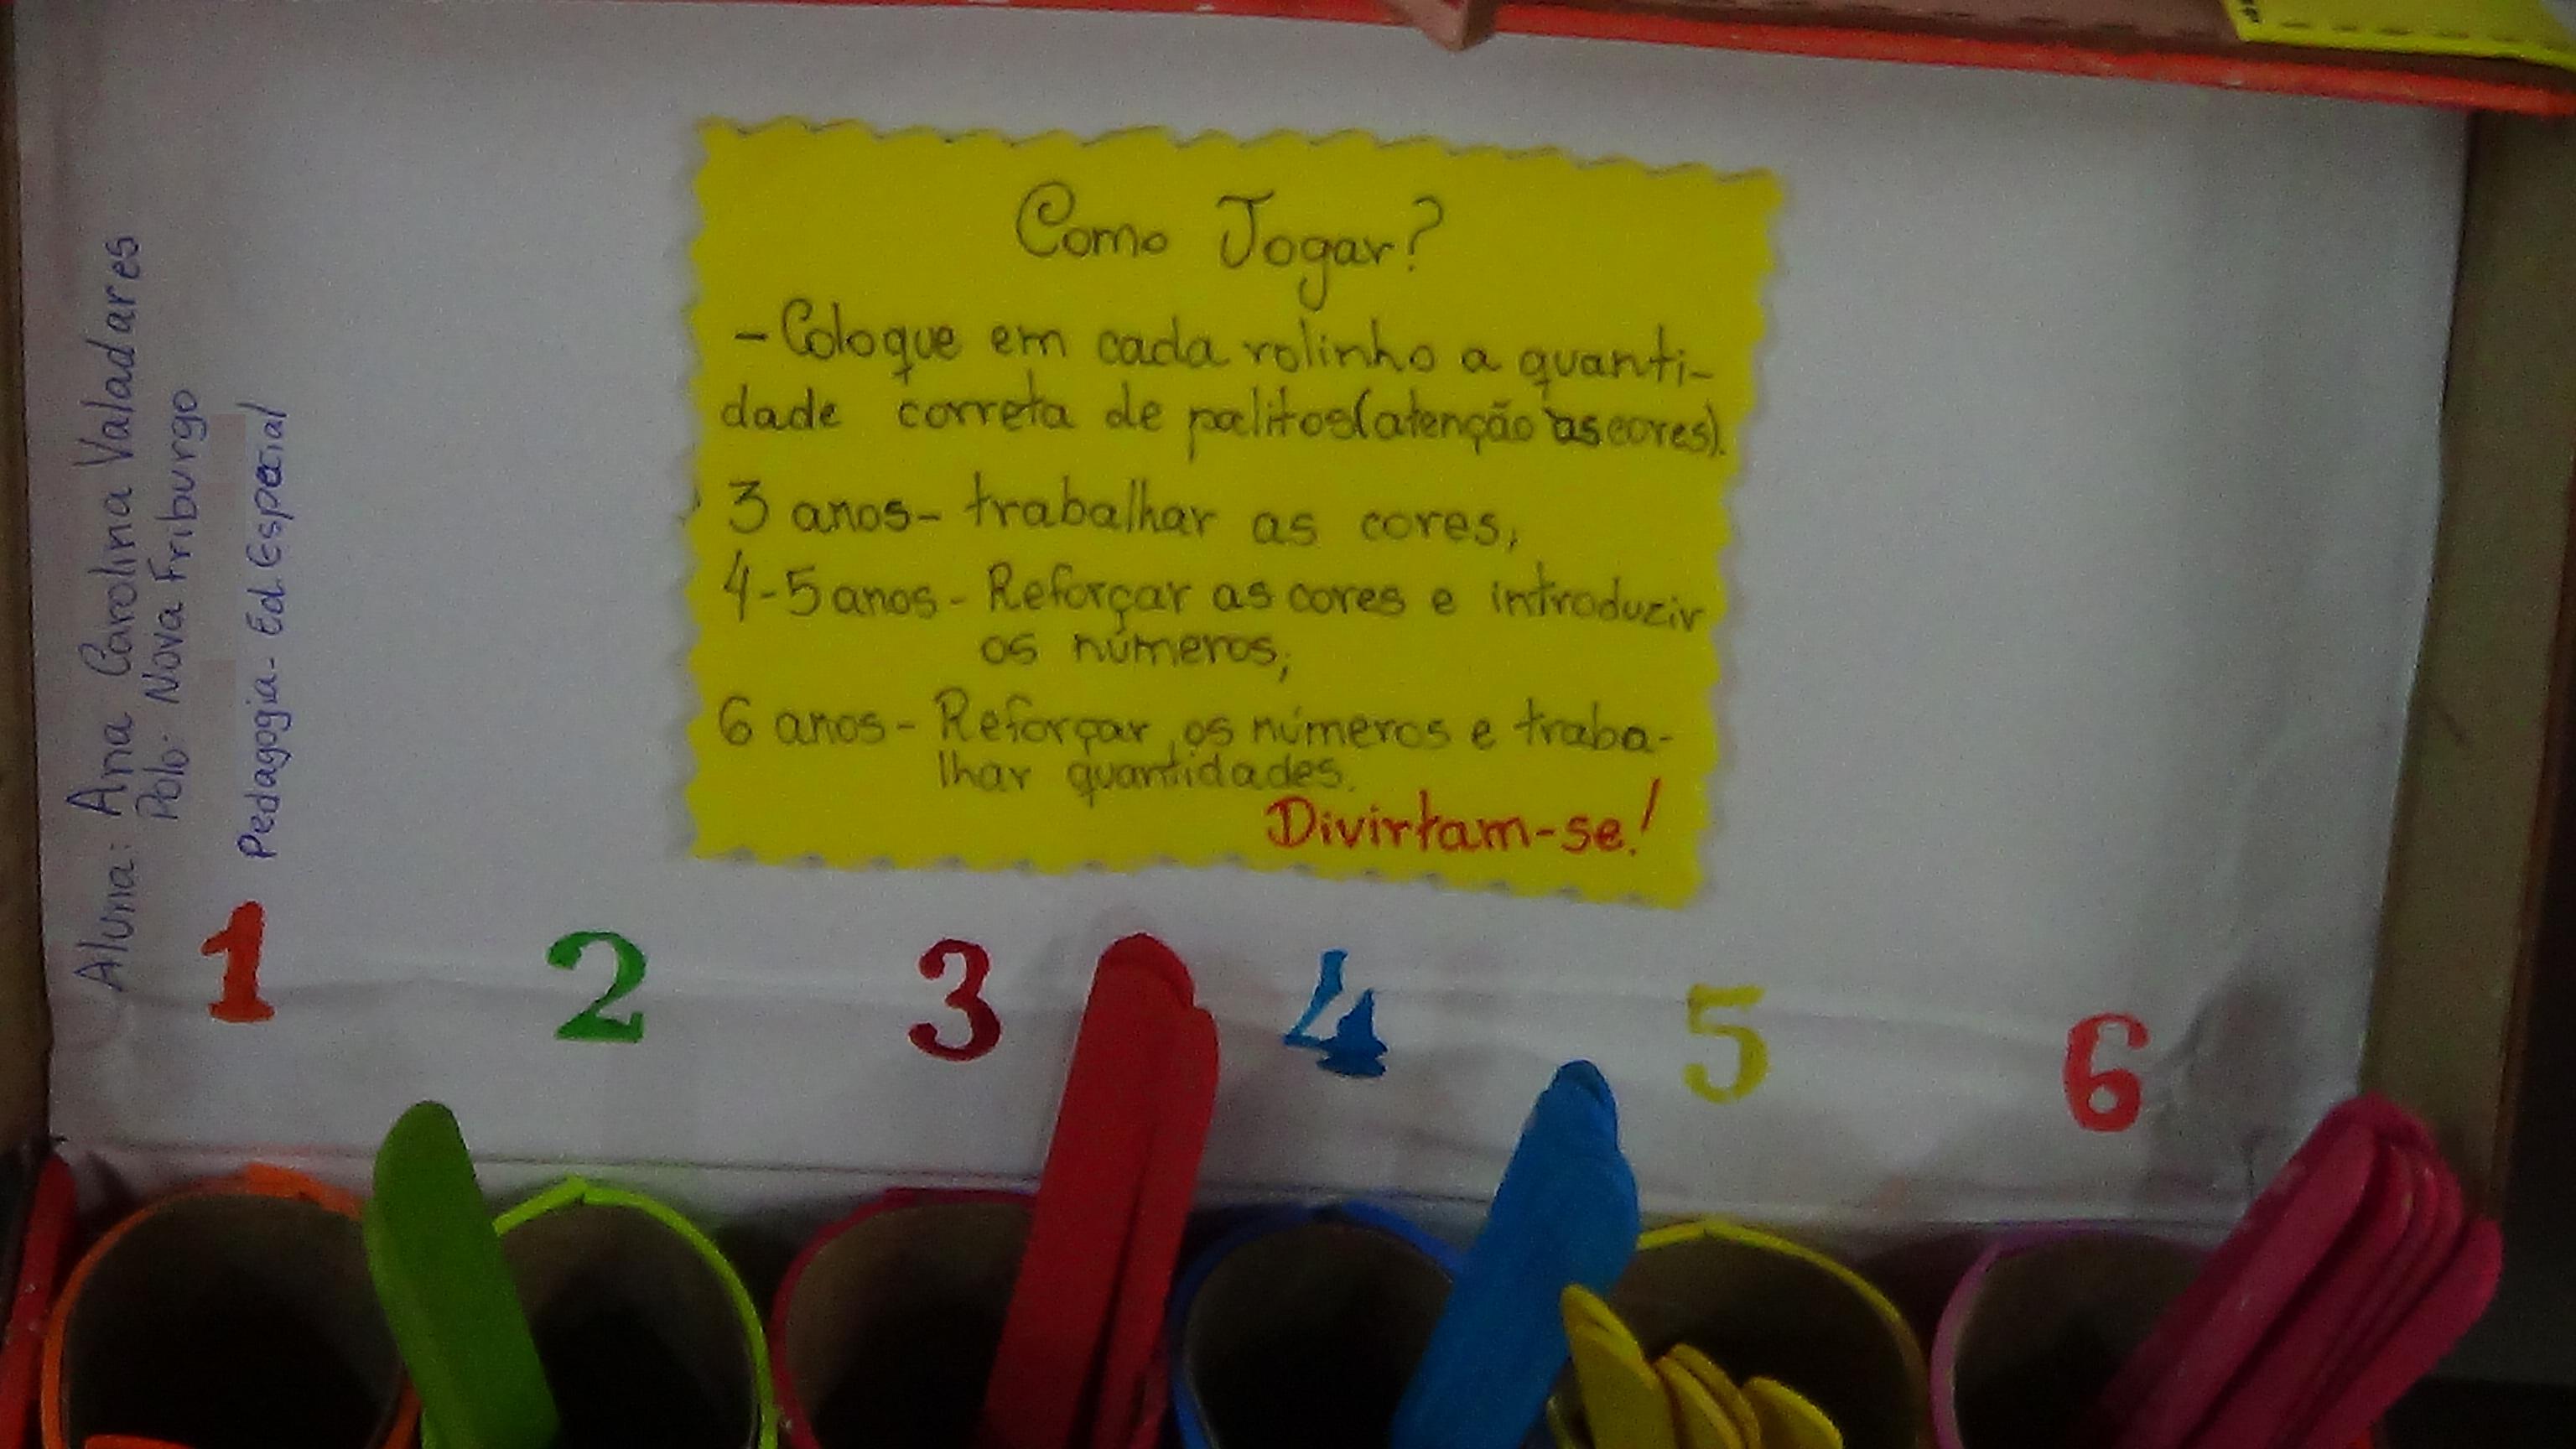 Como Jogar?
- Coloque em cada rolinho a quanti-
dade correta de palitos(atenção às cores).
3 anos- trabalhar as cores;
4-5 anos - Reforçar as cores e introduzir
os números;
6 anos - Reforçar os números e traba-
lhar quantidades.
Divirtam-se!
Aluna: Ana Carolina Valadares
Polo: Nova Friburgo
Pedagogia- Ed. Especial
1 2 3 4 5 6